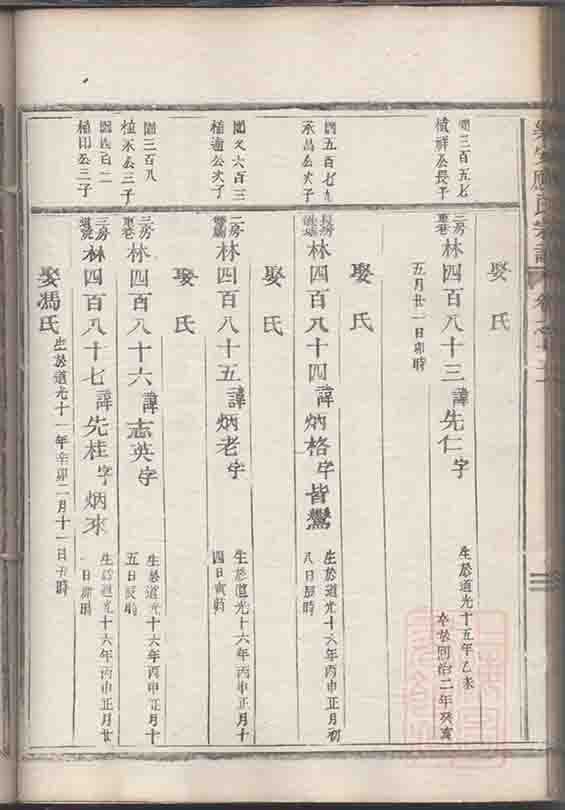 娶氏
圖三百五七
積祥公長子
二房
東巷
林四百八十三諱先仁字
生於道光十五年乙未
五月廿一日卯時
卒於同治二年癸亥
娶氏
圖五百七九
承昌公次子
長房
林四百八十四諱炳格字皆鸞
生於道光十六年丙申正月初
八日辰時
娶氏
圖又六百三
植逾公次子
二房
林四百八十五諱炳老字
生於道光十六年丙申正月十
四日寅時
娶氏
圖三百八
植永公三子
三房
東巷
林四百八十六諱志英字
生於道光十六年丙申正月十
五日辰時
圖四百二
植印公三子
三房
林四百八十七諱先桂字炳來
生於道光十六年丙申正月廿
一日卯時
娶馮氏
生於道光十一年辛卯二月十一日
時